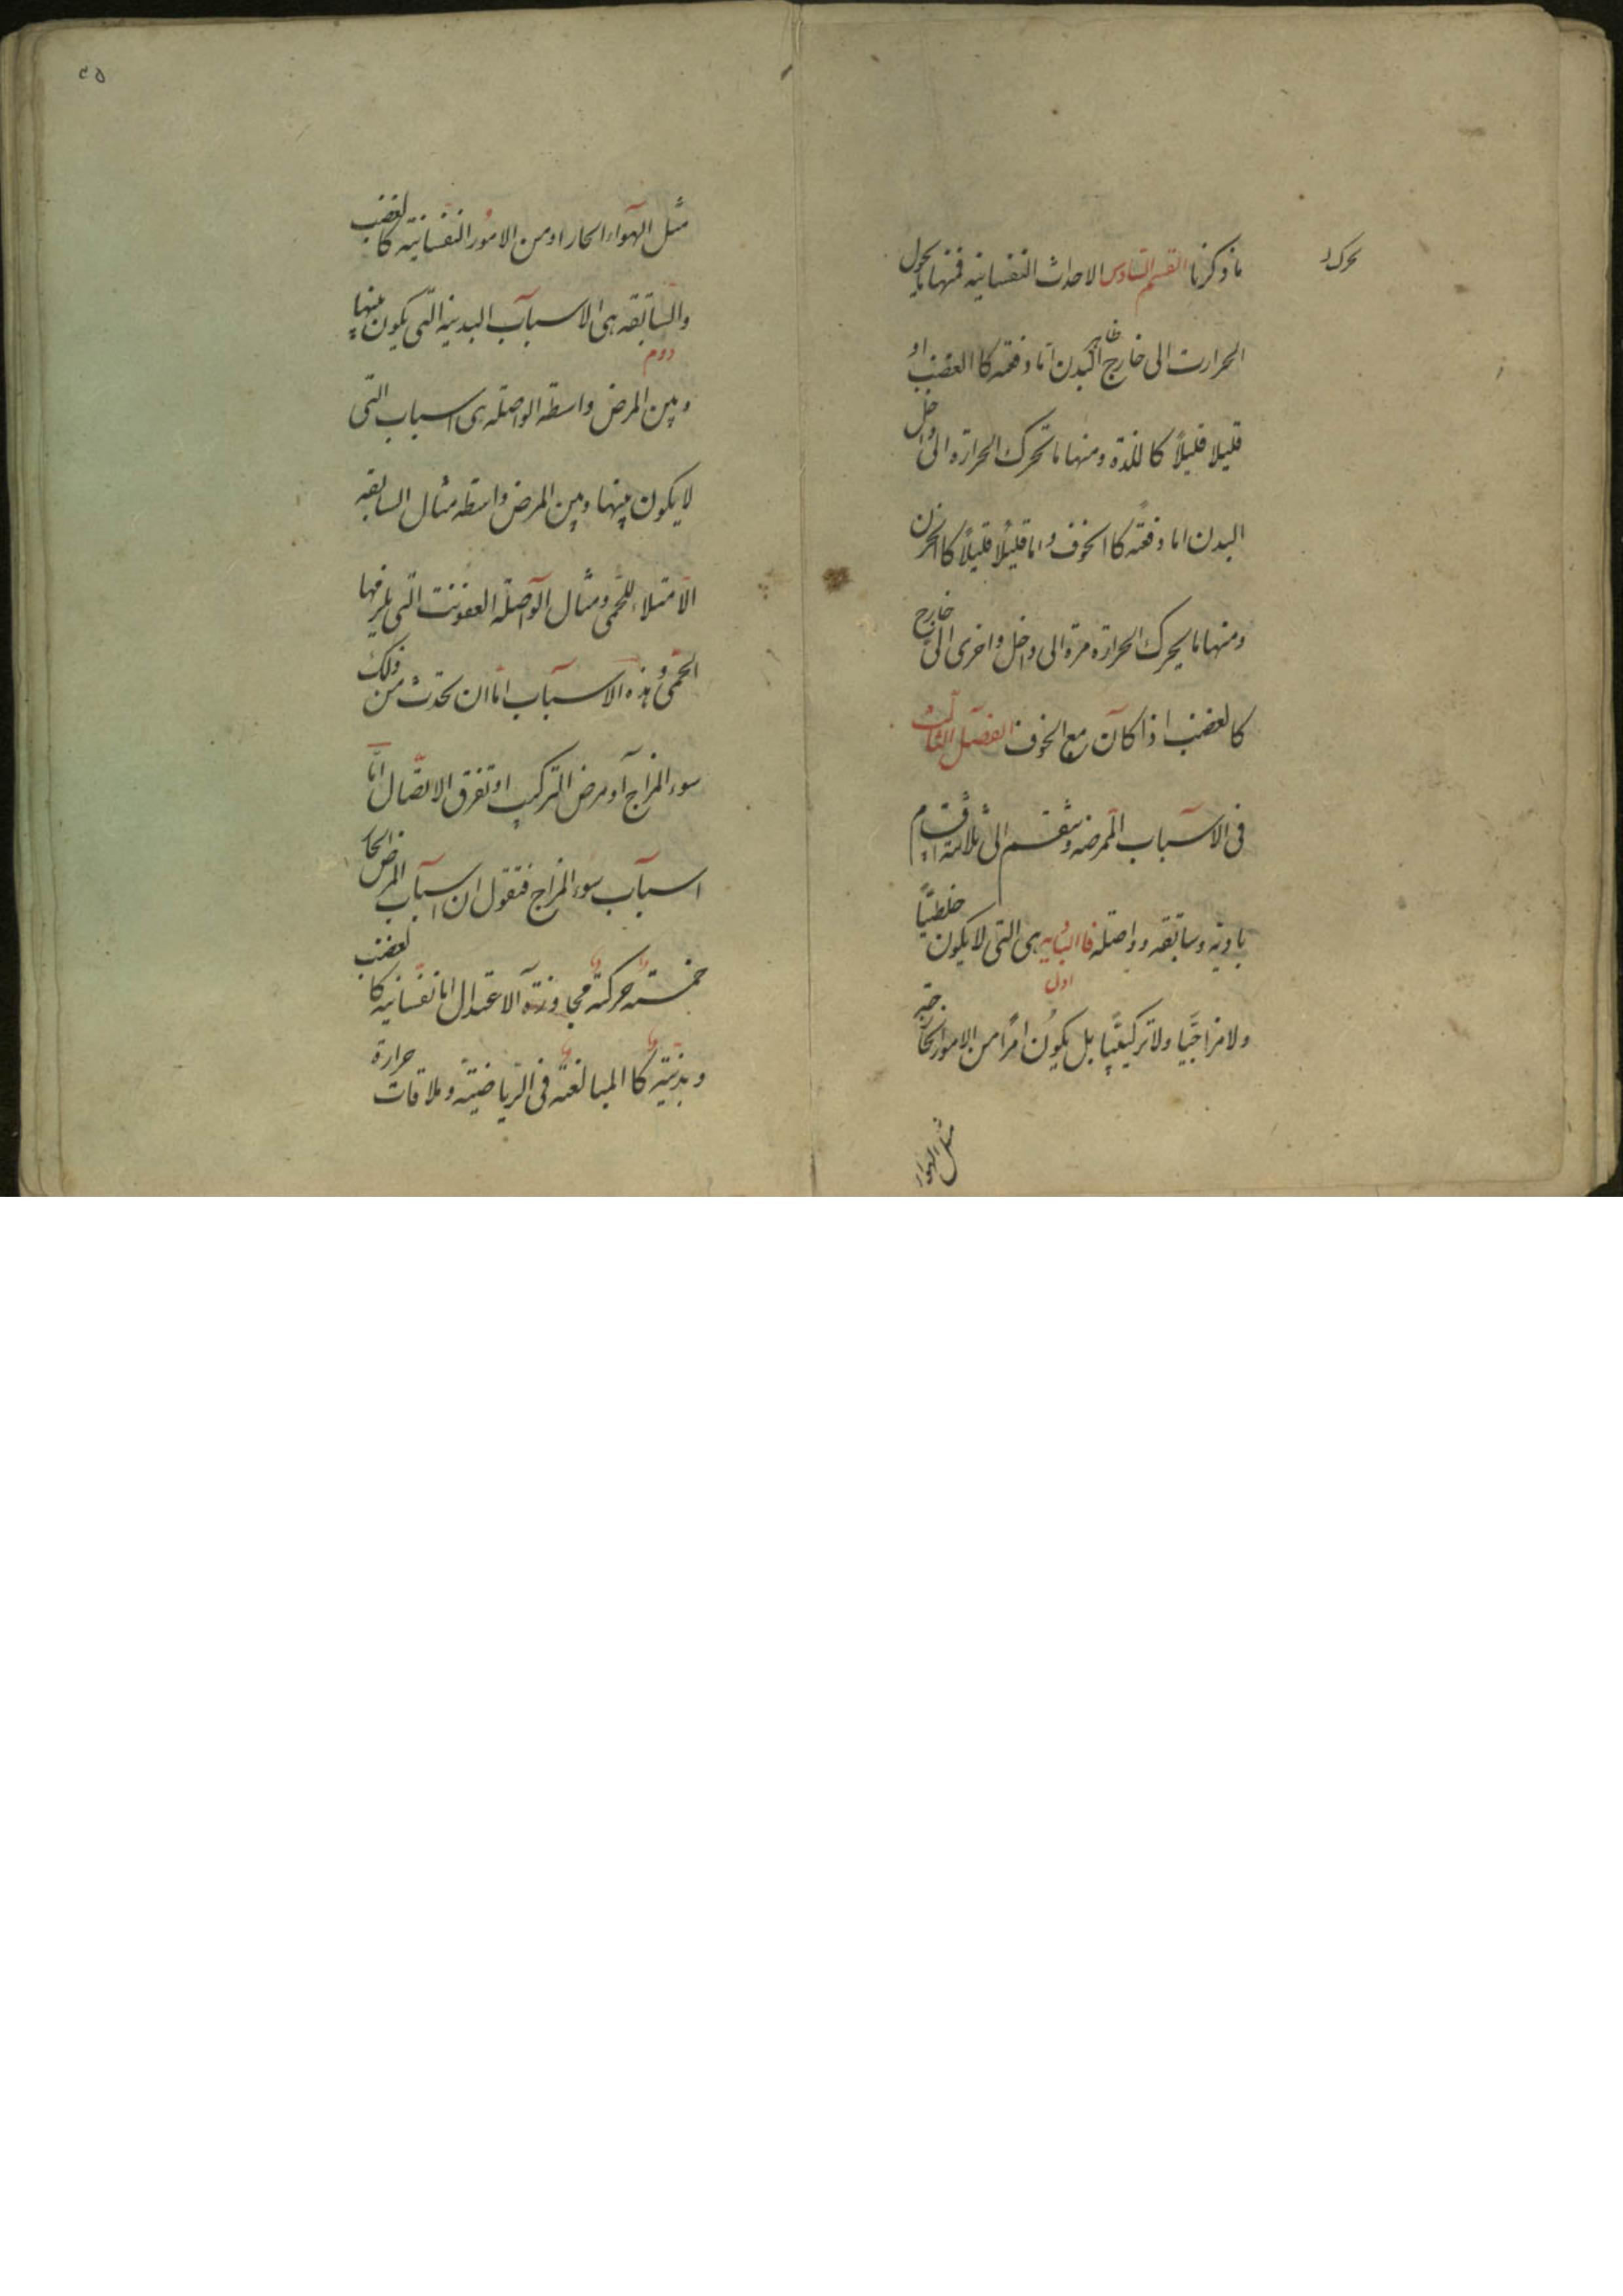 ما ذكرنا القسم السادس الاحداث النفسانيه فمنها ما يحول
تحرك
الحرارت الى خارج البدن اما دفعه كا الغضب او
ظاهر
قليلا قليلاً كاللذة ومنها ما تحرك الحرارة الى داخل
البدن اما دفعته كا الخوف واما قليلاً قليلاً كا الحزن
ومنها ما يحرك الحرارة مرة الى داخل واخرى الى خارج
كالغضب اذا كان مع الخوف الفصل الثالث
فى الاسباب الممرضه وينقسم الى ثلاثة اقسام
باديه وسابقه وواصله فا الباديه هى التى لا يكون خلطيّاً
اول
ولا مزاجيّا ولا تركيبيّا بل يكون امراً من الامور الخارجيه
مثل الهواء
٤٥
مثل الهواء الحار او من الامور النفسانيه كالغضب
والسابقه هى الاسباب البدنيه التى يكون بينها
دوم
وبين المرض واسطة الواصله هى اسباب التى
لا يكون بينها وبين المرض واسطه مثال السابقه
الامتلاء للحمى ومثال الواصلة العفونت التى يلزمها
الحمى وهذه الاسباب اما ان تحدث من ذلك
سوء المزاج او مرض التركيب او تفرق الاتصال اما
اسباب سوء المزاج فنقول ان اسباب المرض الحار
خمسته حركته مجاوزة الاعتدال اما نفسانيه كالغضب
وبدنيّه كا المبالغته فى الرياضيته وملاقات حرارة